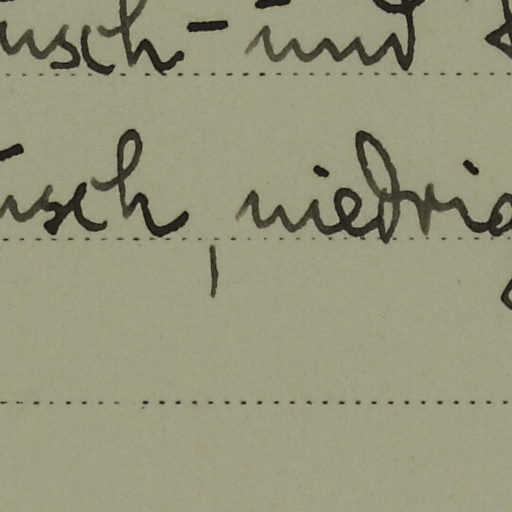 usch - und
usch niedrig